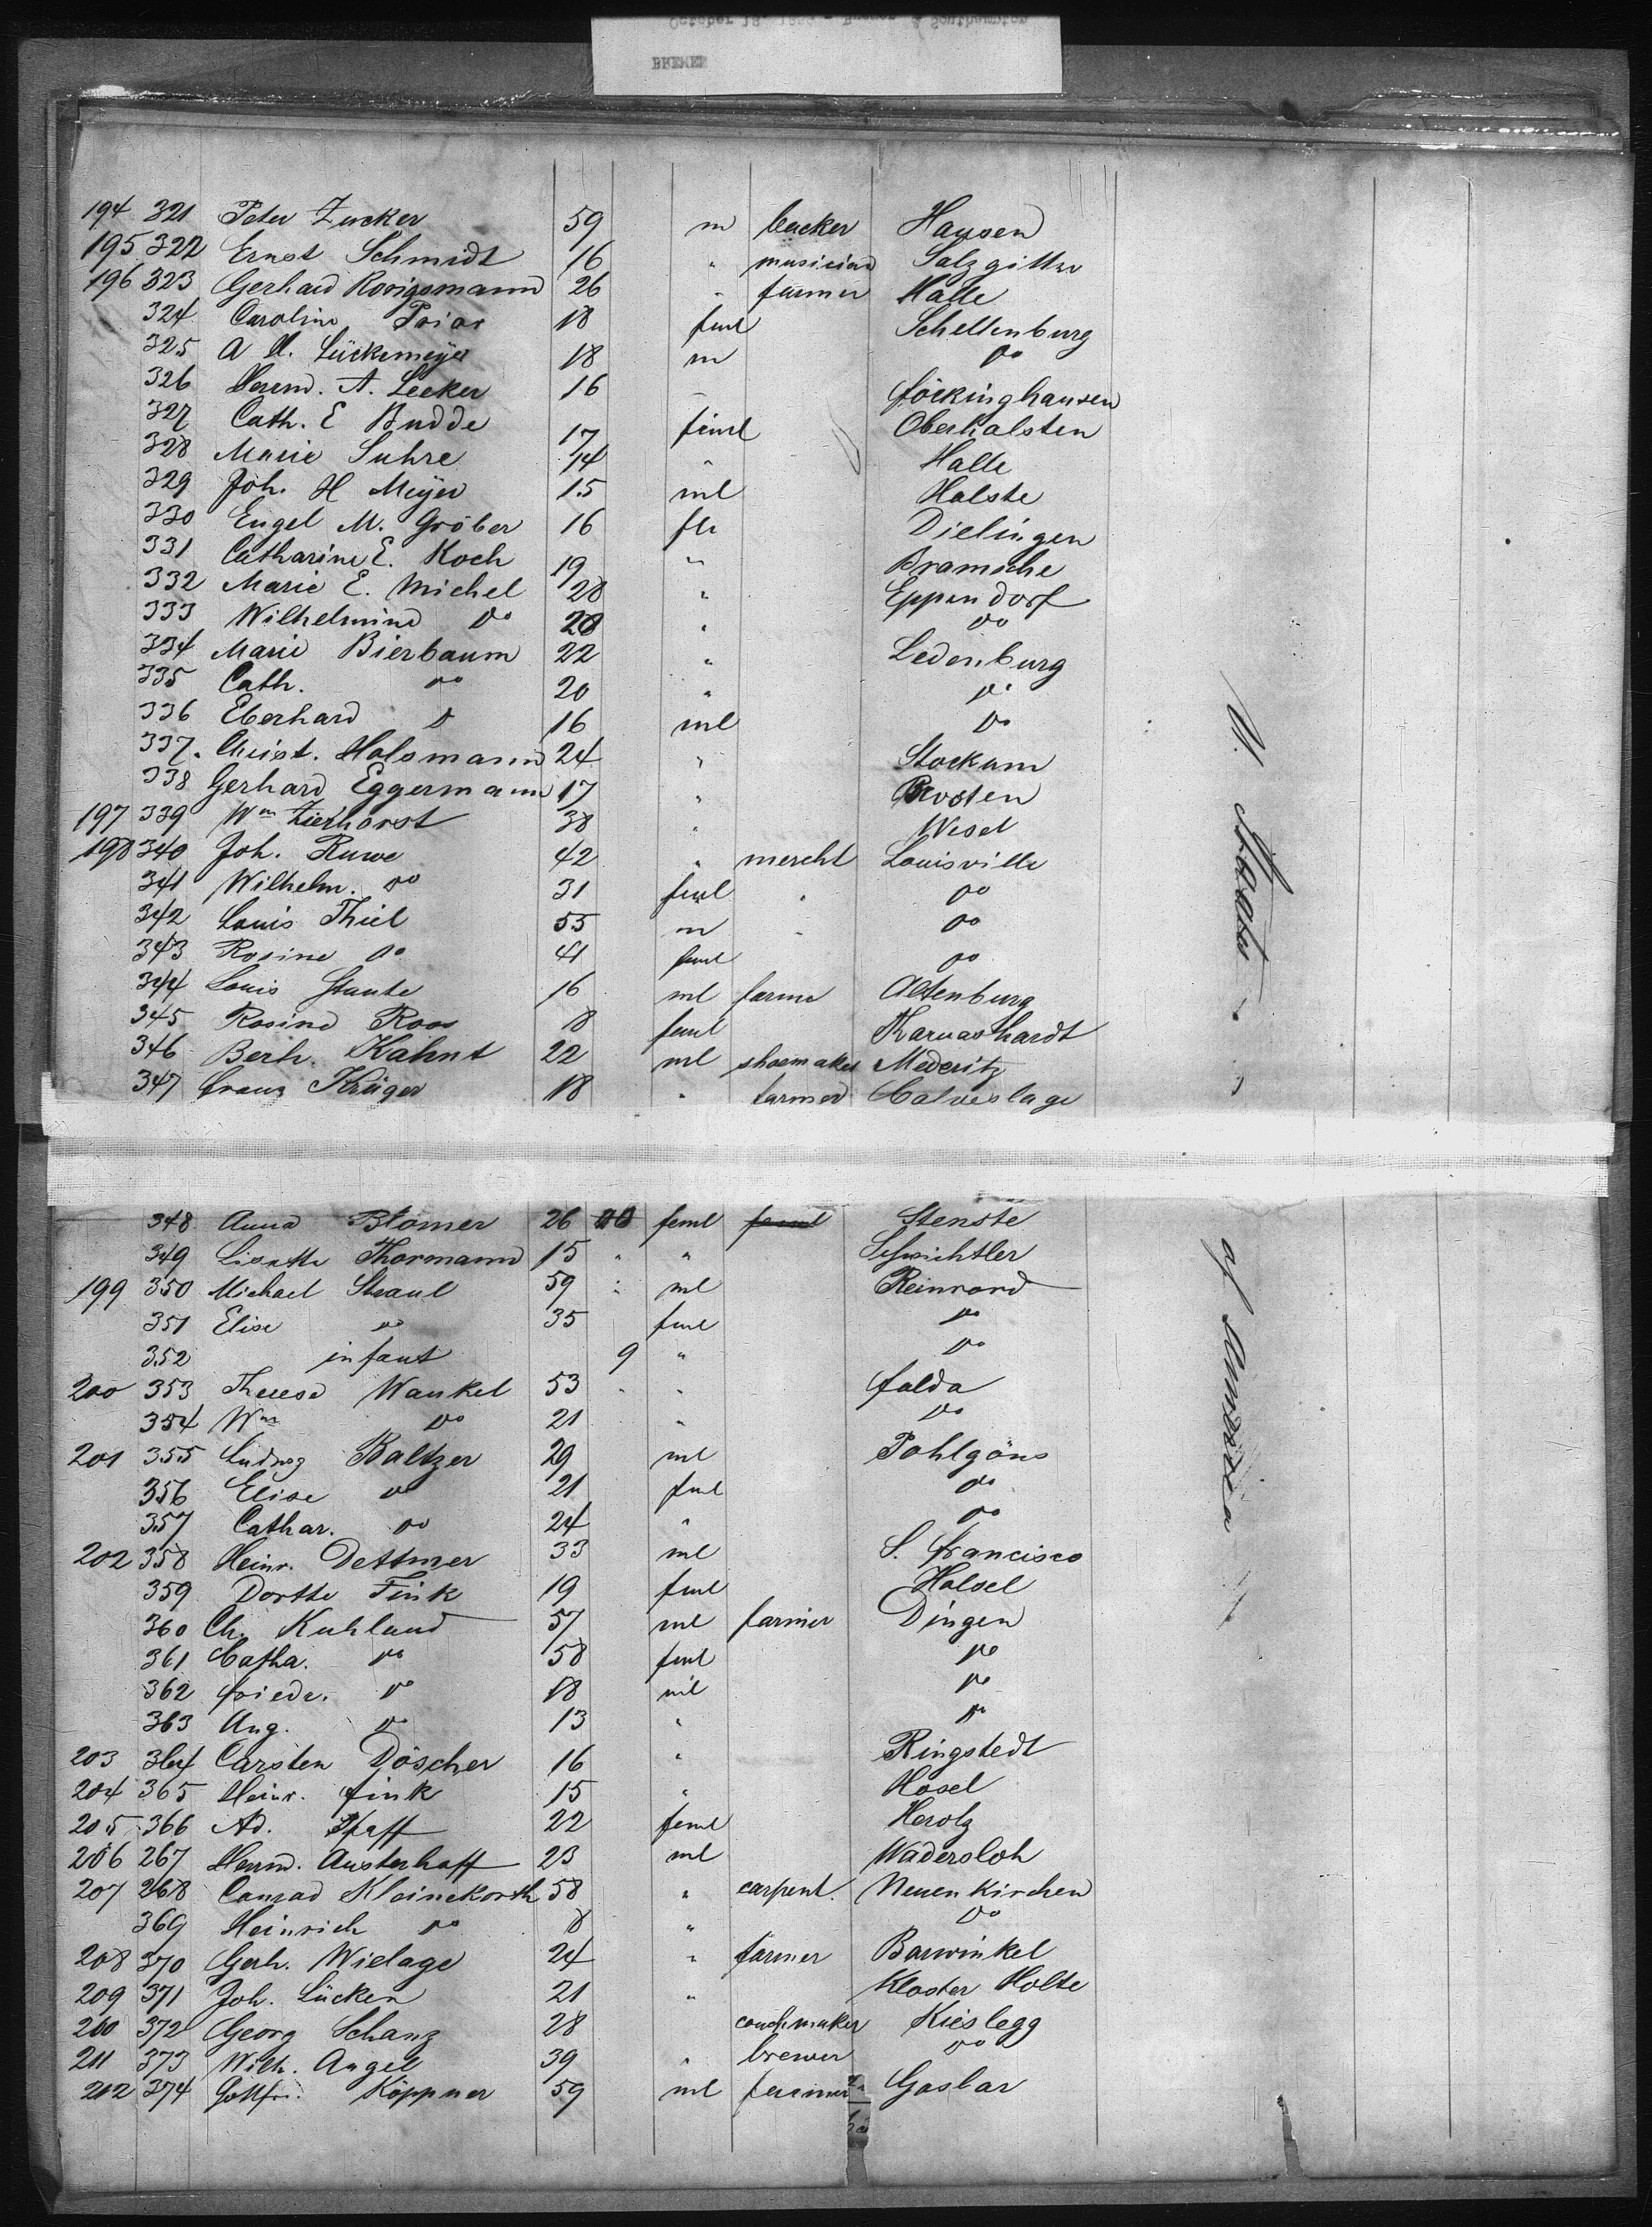 October 18, 1869 - Bremen & Southampton
BREMEN
194 321 Peter Zucker 59 m backer Hausen
195 322 Ernst Schmidt 16 " musician Salzgitter
196 323 Gerhard 26 " farmer Halle
324 Caroline Prior 18 feml Schellenburg
325 A H. Lückemeyer 18 m do
326 Herm. A. Leeker 16 föckinghausen
327 Cath. E Budde 17 feml Oberhalsten
328 Marie Suhre 14 " Halle
329 Joh. H Meyer 15 ml Halste
330 Engel M. Gröber 16 fle Dielingen
331 Catharine E. Koch 19 " Bramsche
332 Marie E. Michel 28 " Eppendorf
333 Wilhelmine do 20 " do
334 Marie Bierbaum 22 " Ledenburg
335 Cath. do 20 " do
336 Eberhard do 16 ml do
337. Christ. Holsmann 24 " Stockum
338 Gerhard Eggermann 17 "
197 339 Wm Zierhorst 38 " Wesel
198 340 Joh. Ruwe 42 " mercht Louisville
341 Wilhelm. do 31 feml " do
342 Louis Thiel 55 m " do
343 Rosine do 41 feml do
344 Louis Staute 16 ml farme Altenburg
345 Rosine Roos 18 feml
346 Berh. Kahnt 22 ml shoemaker Mederitz
347 franz Krüger 18 " farmer Calveslage
348 Anna Blomer 26 feml feml Stenste
349 Lisette Thormann 15 " "
199 350 Michael Straul 59 " ml Reinrord
351 Elise do 35 feml do
352 infant 9 " do
200 353 Therese Wankel 53 " " fulda
354 Wm do 21 " do
201 355 Ludwg Baltzer 29 ml Pohlgöns
356 Elise do 21 fml do
357 Cathar. do 24 " do
202 358 Heinr. Dettmer 33 ml S. francisco
359 Dorthe Fink 19 feml Holsel
360 Ch. Kuhland 57 ml farmer Dingen
361 Catha. do 58 feml do
362 friedr. do 18 ml do
363 Aug. do 13 " do
203 364 Carsten Döscher 16 " Ringstedt
204 365 Heinr. fink 15 " Hosel
205 366 Ad. Pfaff 22 feml Herolz
206 267 Herm. Austerhoff 23 ml Wadersloh
207 268 Conrad Kleinekorth 58 " carpent. Neuenkirchen
369 Heinrich do 8 " do
208 370 Gerh. Wielage 24 " farmer Barwinkel
209 371 Joh. Lücken 21 " Kloster Holte
210 372 Georg Schanz 28 coachmaker Kieslegg
211 373 Wilh. Angel 39 " brewer do
212 374 Gottfr. Köppner 59 ml farmer Goslar
U. States
of America